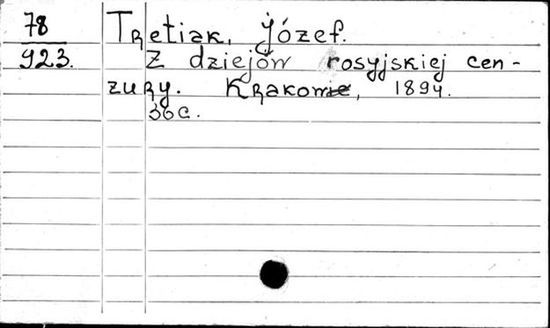 78
923.
Tretiak, Józef.
Z dziejów rosyjskiej cen-
zury. Krakow, 1894.
36 c.